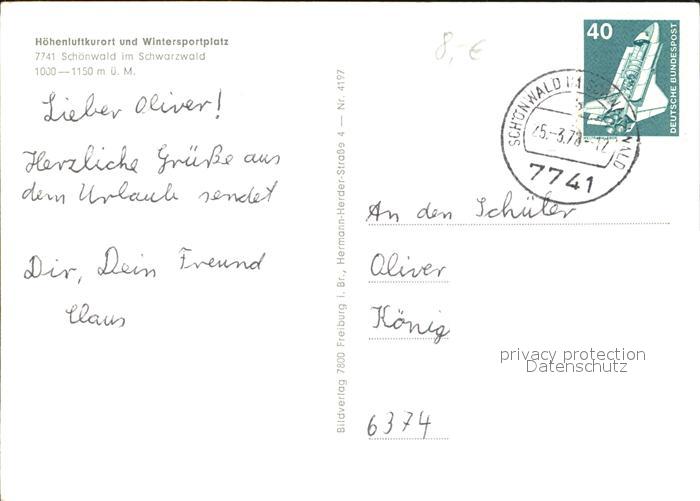 Höhenluftkurort und Wintersportplatz
7741 Schönwald im Schwarzwald
1000—1150 m ü. M.
Lieber Oliver!
Herzliche Grüße aus
dem Urlaub sendet
Dir, Dein Freund
Claus
Bildverlag 7800 Freiburg i. Br., Hermann-Herder-Straße 4 — Nr. 4197
8,- €
40
DEUTSCHE BUNDESPOST
SCHÖNWALD IM SCHWARZWALD
7741
An den Schüler
Oliver
König
privacy protection
Datenschutz
6374